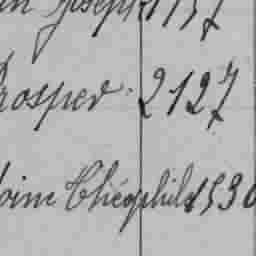 Joseph 1757
Prosper 2127
oine Théophile 1530